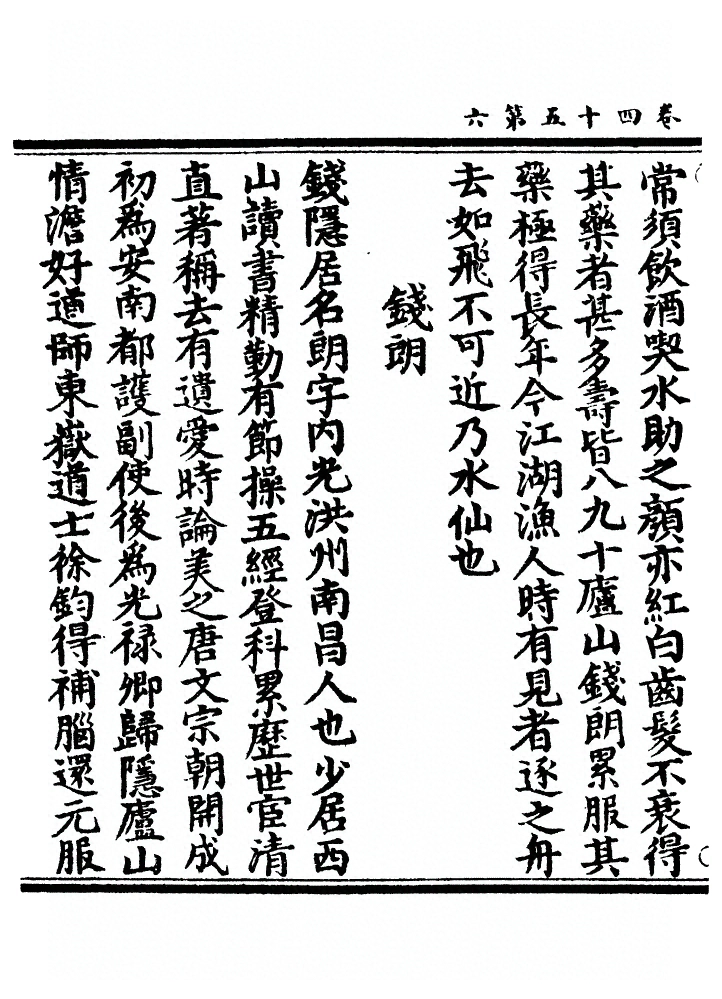 卷四十五第六
常須飲酒喫水助之顏亦紅白齒髮不衰得
其藥者甚多壽皆八九十廬山錢朗累服其
藥極得長年今江湖漁人時有見者逐之舟
去如飛不可近乃水仙也
錢朗
錢隱居名朗字内光洪州南昌人也少居西
山讀書精勤有節操五經登科累歷世宦清
直著稱去有遺愛時論美之唐文宗朝開成
初爲安南都護副使後爲光禄卿歸隱廬山
情澹好道師東嶽道士徐鈞得補腦還元服